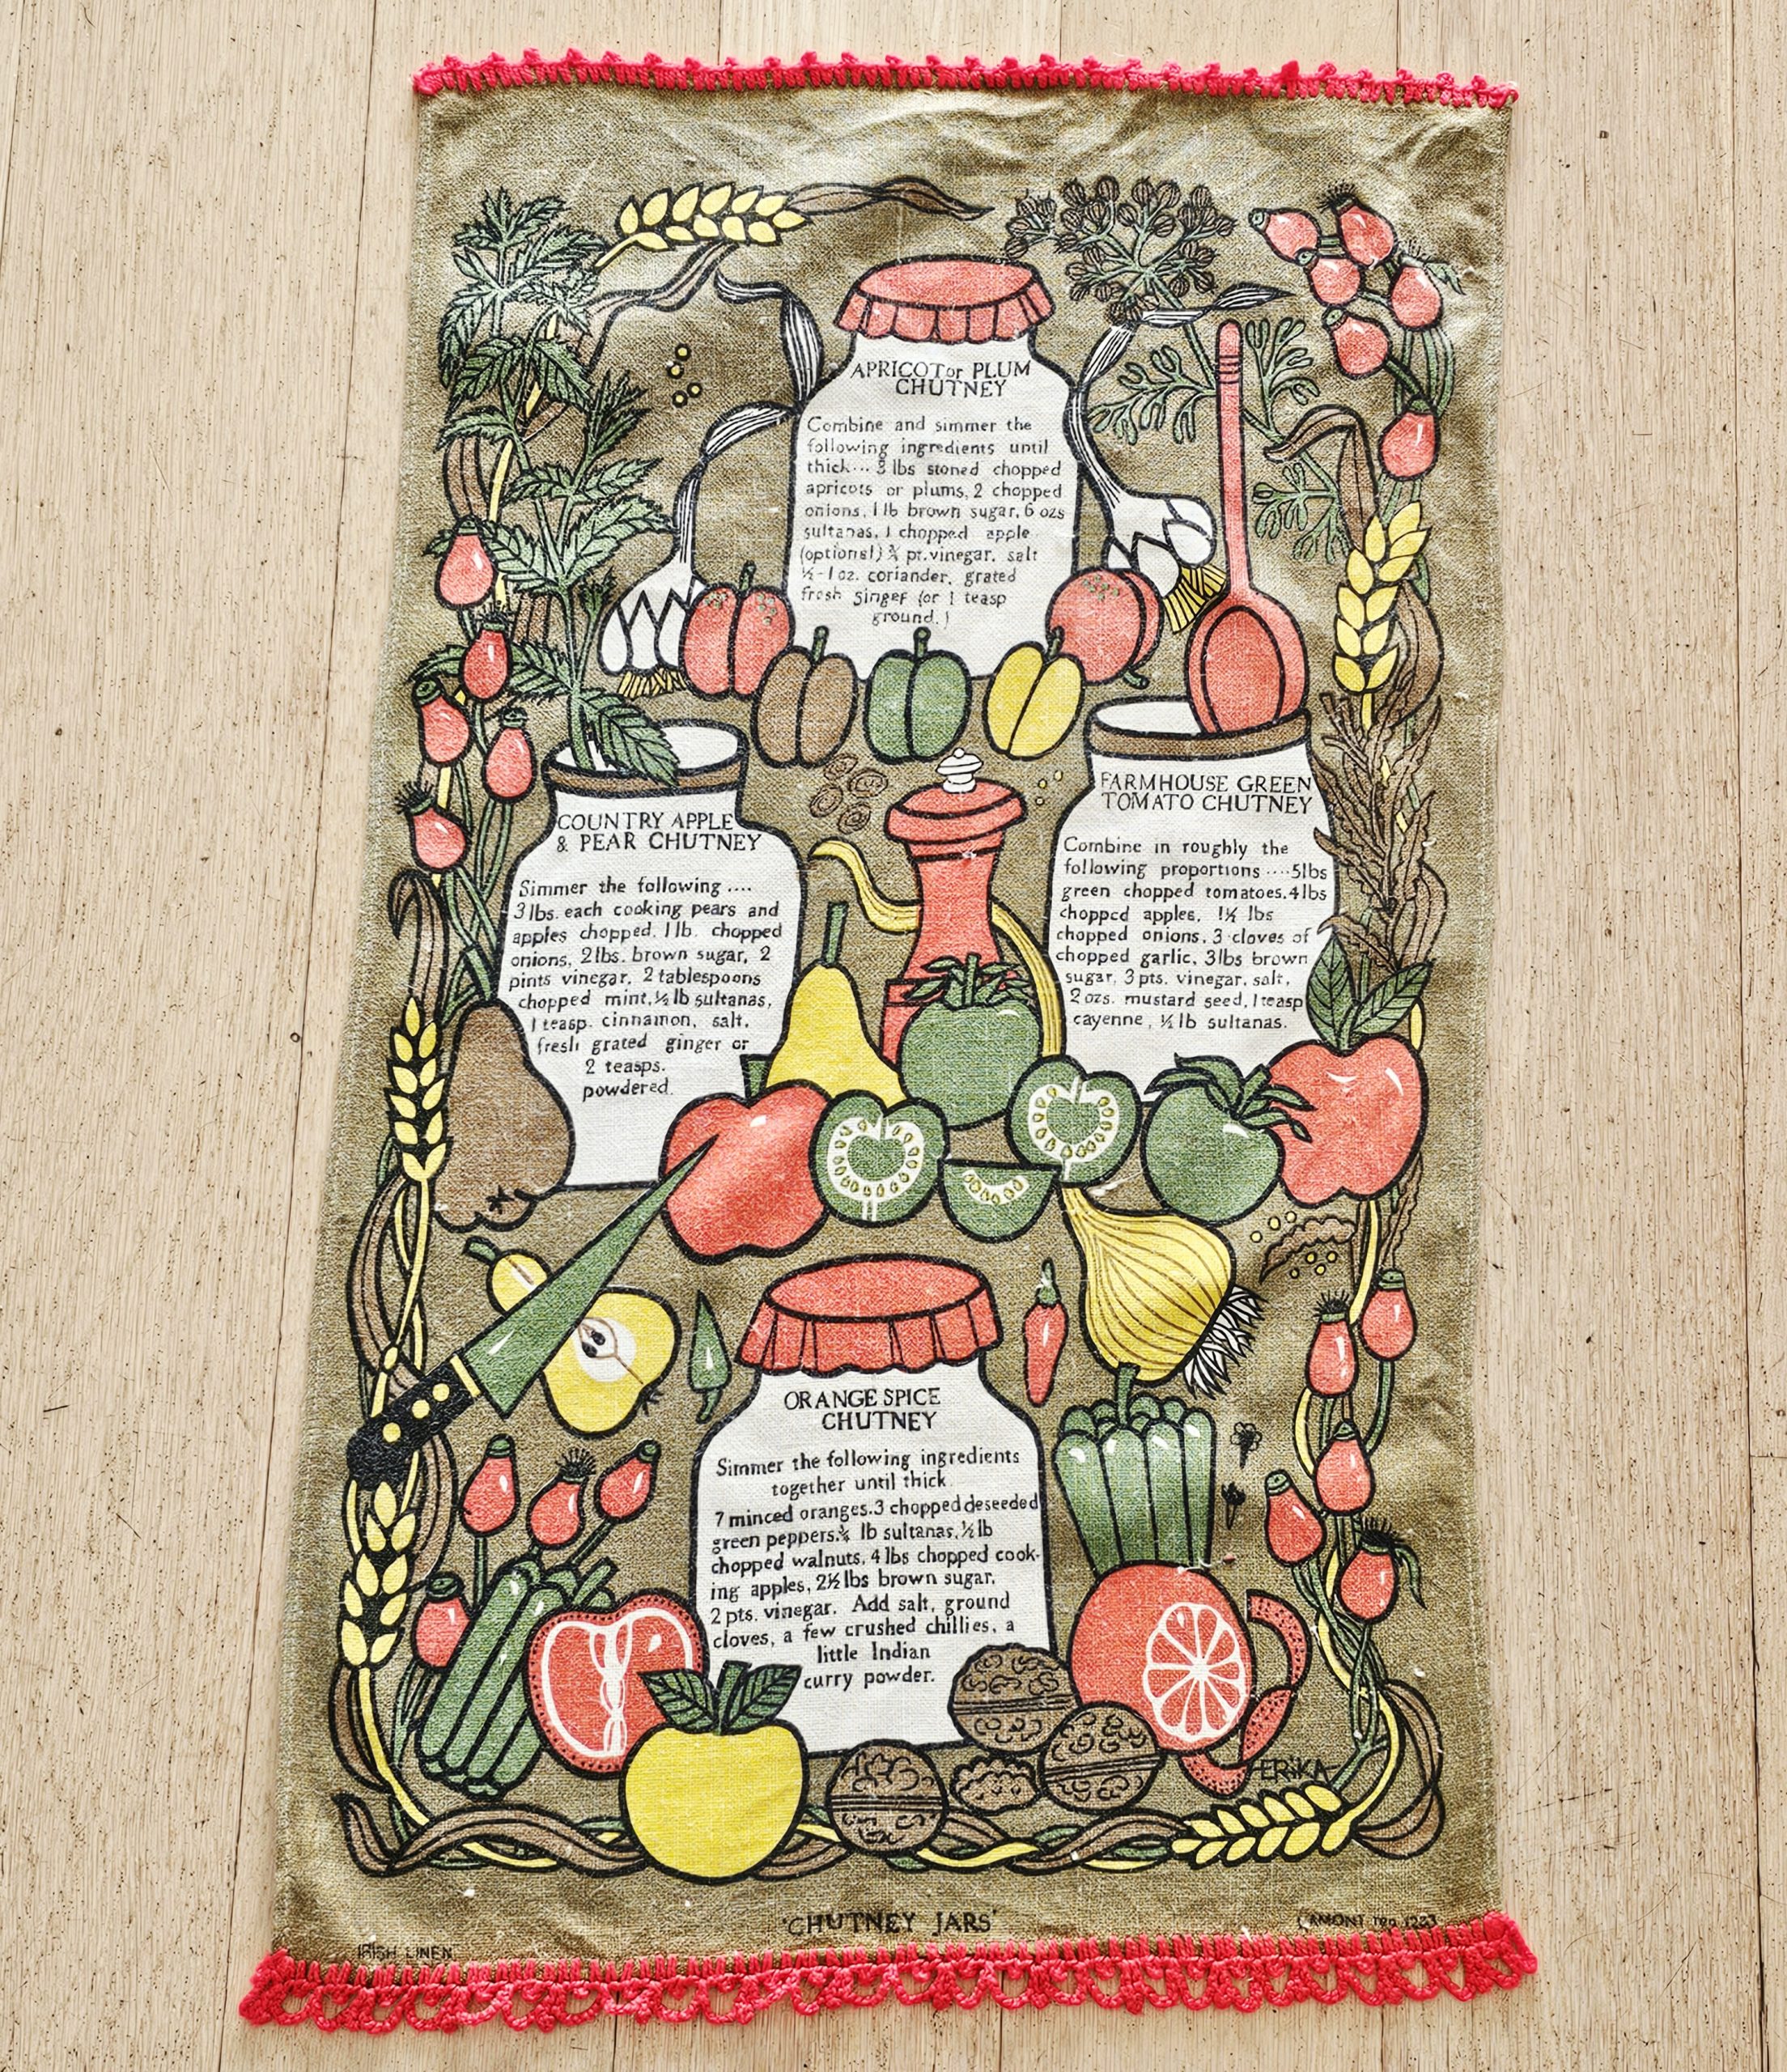 APRICOT or PLUM
CHUTNEY
Combine and simmer the
following ingredients until
thick... 3 lbs stoned chopped
apricots or plums, 2 chopped
onions, 1 lb brown sugar, 6 ozs
sultanas, 1 chopped apple
(optional) ¾ pt. vinegar, salt
½-1 oz. coriander, grated
fresh ginger (or 1 teasp
ground.)
COUNTRY APPLE
& PEAR CHUTNEY
Simmer the following ....
3 lbs. each cooking pears and
apples chopped, 1 lb. chopped
onions, 2 lbs. brown sugar, 2
pints vinegar, 2 tablespoons
chopped mint, ½ lb sultanas,
1 teasp. cinnamon, salt,
fresh grated ginger or
2 teasps.
powdered.
FARMHOUSE GREEN
TOMATO CHUTNEY
Combine in roughly the
following proportions ....5lbs
green chopped tomatoes, 4lbs
chopped apples, 1½ lbs
chopped onions, 3 cloves of
chopped garlic, 3lbs brown
sugar, 3 pts. vinegar, salt,
2 ozs. mustard seed, 1 teasp
cayenne, ½ lb sultanas.
ORANGE SPICE
CHUTNEY
Simmer the following ingredients
together until thick
7 minced oranges. 3 chopped deseeded
green peppers. ¾ lb sultanas, ½ lb
chopped walnuts, 4 lbs chopped cook-
ing apples, 2½ lbs brown sugar,
2 pts. vinegar. Add salt, ground
cloves, a few crushed chillies, a
little Indian
curry powder.
ERIKA
'CHUTNEY JARS'
LAMONT
IRISH LINEN